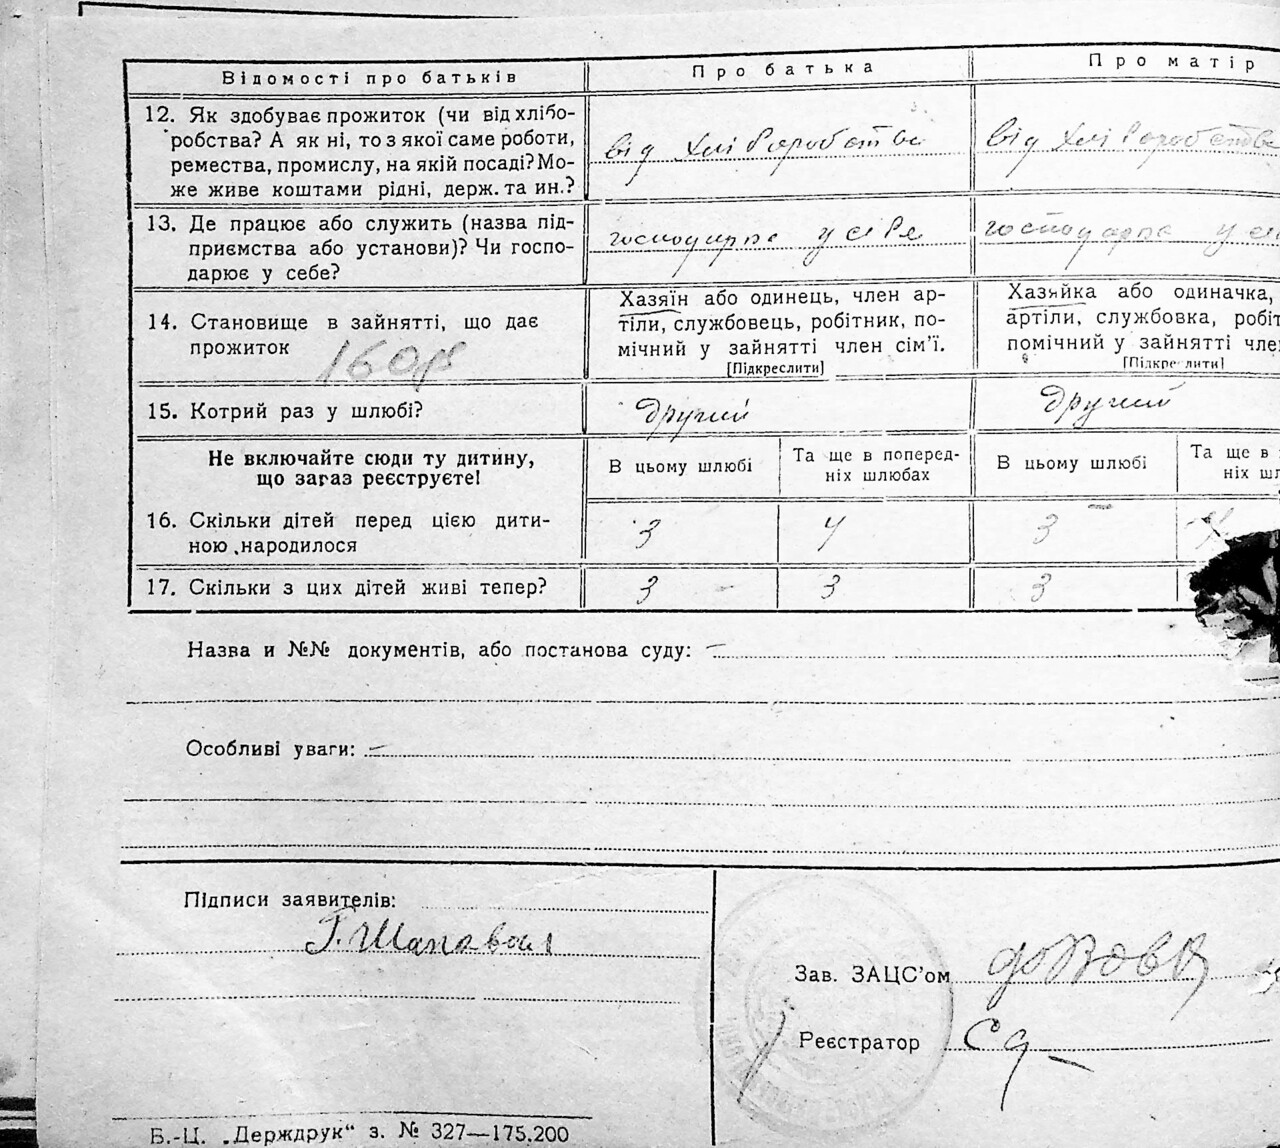 Відомості про батьків
Про батька
Про матір
12. Як здобуває прожиток (чи від хлібо-
робства? А як ні, то з якої саме роботи,
ремества, промислу, на якій посаді? Мо-
же живе коштами рідні, держ. та ин.?
від хліборобства
від хліборобства
13. Де працює або служить (назва під-
приємства або установи)? Чи госпо-
дарює у себе?
господарює у себе
господарює у
14. Становище в зайнятті, що дає
прожиток
Хазяїн або одинець, член ар-
тіли, службовець, робітник, по-
мічний у зайнятті член сім’ї.
[Підкреслити]
Хазяйка або одиначка,
артіли, службовка, робіт
помічний у зайнятті чле
[Підкреслити]
15. Котрий раз у шлюбі?
другий
другий
Не включайте сюди ту дитину,
що зараз реєструєте!
В цьому шлюбі
Та ще в поперед-
ніх шлюбах
В цьому шлюбі
Та ще в
ніх шл
16. Скільки дітей перед цією дити-
ною народилося
3
4
3
17. Скільки з цих дітей живі тепер?
3
3
3
Назва и №№ документів, або постанова суду: —
Особливі уваги: —
Підписи заявителів:
Зав. ЗАЦС’ом
Реєстратор
Б.-Ц. „Держдрук“ з. № 327—175.200